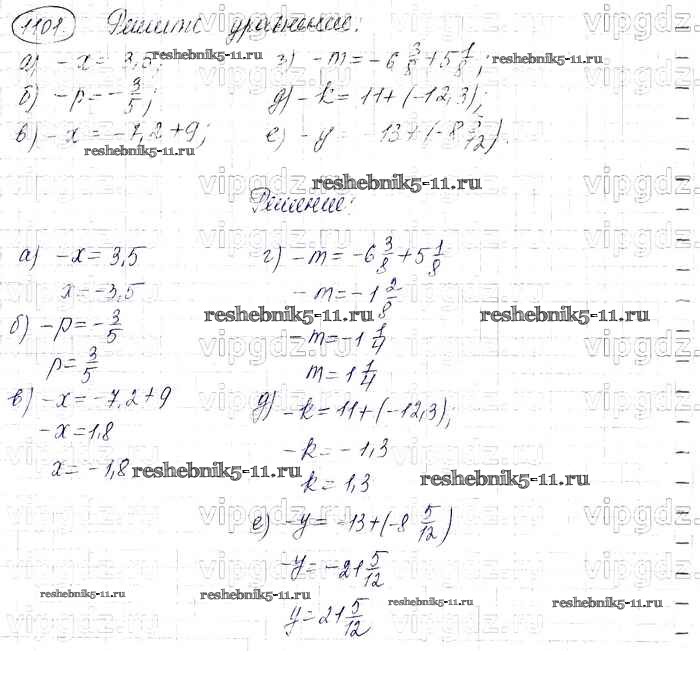 1101. Решите уравнение:
а) -x = 3,5;
б) -p = -3/5;
в) -x = -7,2+9;
г) -m = -6 3/8 + 5 1/8;
д) -k = 11+(-12,3);
е) -y = -13+(-8 5/12).
reshebnik5-11.ru
reshebnik5-11.ru
reshebnik5-11.ru
reshebnik5-11.ru
Решение:
а) -x = 3,5
x = -3,5
б) -p = -3/5
p = 3/5
в) -x = -7,2+9
-x = 1,8
x = -1,8
г) -m = -6 3/8 + 5 1/8
-m = -1 2/8
-m = -1 1/4
m = 1 1/4
д) -k = 11+(-12,3);
-k = -1,3
k = 1,3
е) -y = -13+(-8 5/12)
-y = -21 5/12
y = 21 5/12
reshebnik5-11.ru
reshebnik5-11.ru
reshebnik5-11.ru
reshebnik5-11.ru
reshebnik5-11.ru
reshebnik5-11.ru
reshebnik5-11.ru
reshebnik5-11.ru
vipgdz.ru